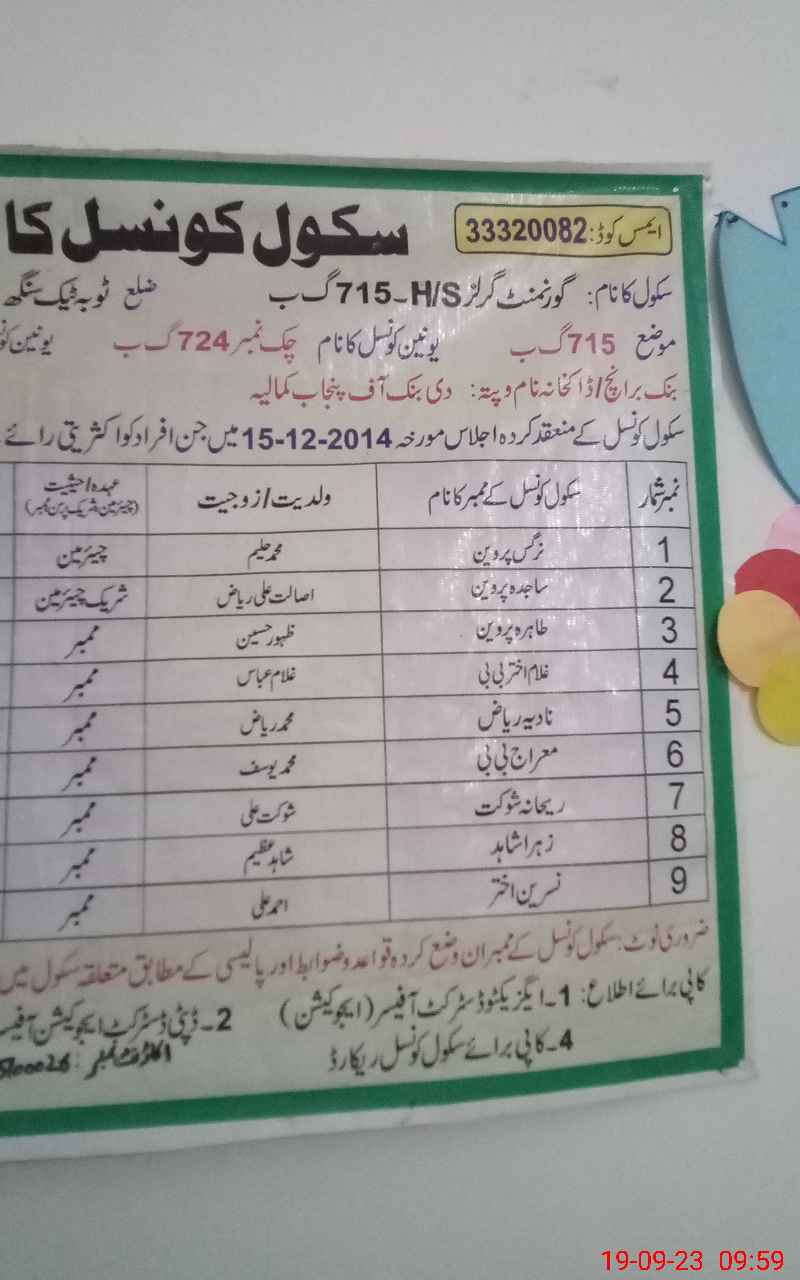 ایمس کوڈ: 33320082
سکول کونسل کا
سکول کا نام: گورنمنٹ گرلز H/S-715 گ ب ضلع ٹوبہ ٹیک سنگھ
موضع 715 گ ب یونین کونسل کا نام چک نمبر 724 گ ب یونین
بنک برانچ/ڈاکخانہ نام و پتہ: دی بنک آف پنجاب کمالیہ
سکول کونسل کے منعقد کردہ اجلاس مورخہ 15-12-2014 میں جن افراد کو اکثریتی رائے
نمبر شمار سکول کونسل کے ممبر کا نام ولدیت/زوجیت عہدہ/حیثیت
1 نرگس پروین محمد حلیم چیئرمین
2 ساجدہ پروین اصالت علی ریاض شریک چیئرمین
3 طاہرہ پروین ظہور حسین ممبر
4 غلام اختر بی بی غلام عباس ممبر
5 نادیہ ریاض محمد ریاض ممبر
6 معراج بی بی محمد یوسف ممبر
7 ریحانہ شوکت شوکت علی ممبر
8 زہرا شاہد شاہد عظیم ممبر
9 نسرین اختر احمد علی ممبر
ضروری نوٹ: سکول کونسل کے ممبران وضع کردہ قواعد و ضوابط اور پالیسی کے مطابق متعلقہ سکول میں
کاپی برائے اطلاع: 1۔ ایگزیکٹو ڈسٹرکٹ آفیسر (ایجوکیشن) 2۔ ڈپٹی ڈسٹرکٹ ایجوکیشن آفیسر
4۔ کاپی برائے سکول کونسل ریکارڈ
19-09-23 09:59